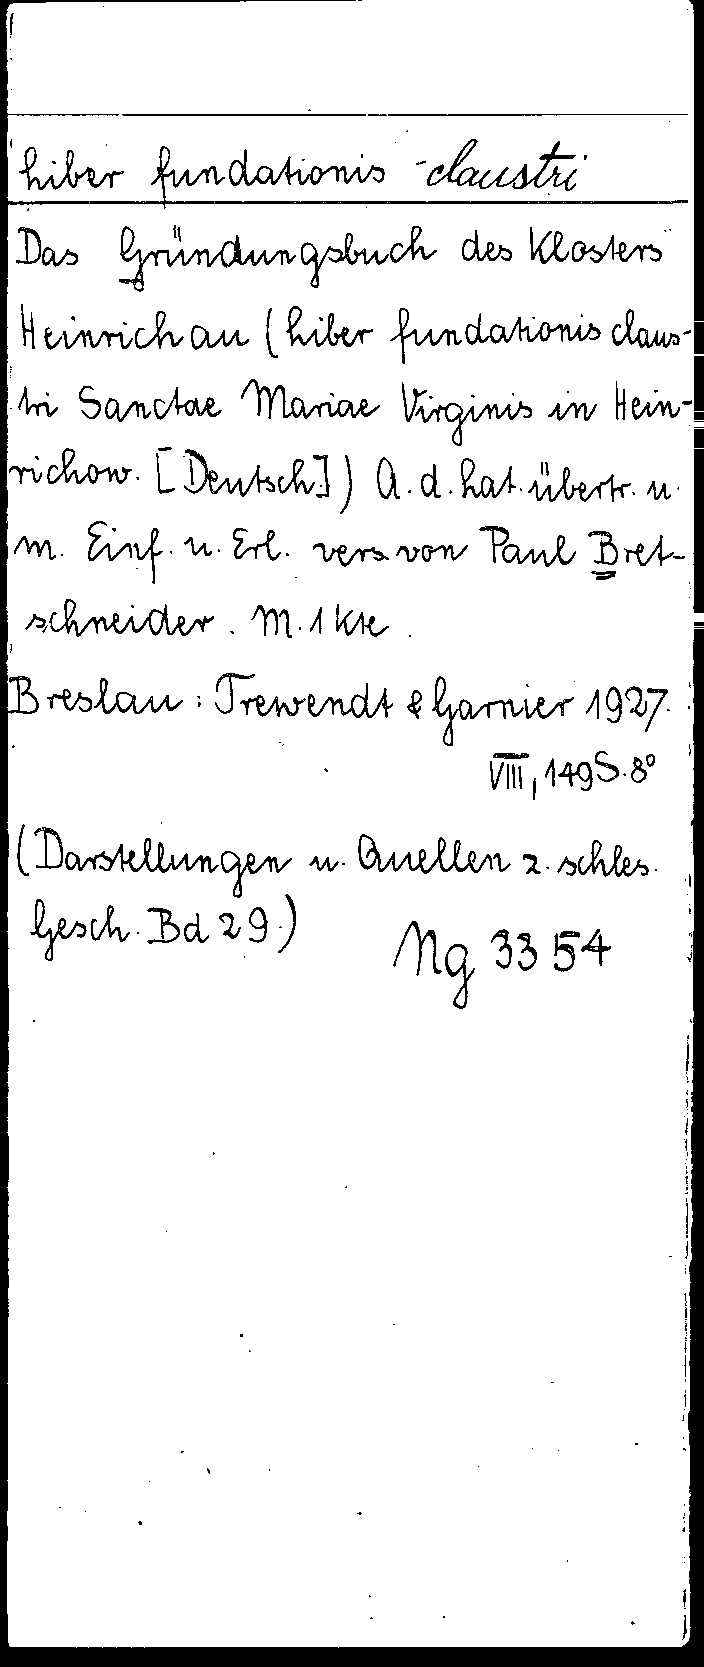 Liber fundationis claustri
Das Gründungsbuch des Klosters
Heinrichau (Liber fundationis claus-
tri Sanctae Mariae Virginis in Hein-
richow. [Deutsch]) A. d. Lat. übertr. u.
m. Einf. u. Erl. vers. von Paul Bret-
schneider. M. 1 Kte.
Breslau: Trewendt & Garnier 1927.
VIII, 149 S. 8°
(Darstellungen u. Quellen z. schles.
Gesch. Bd 29.)
Ng 3354